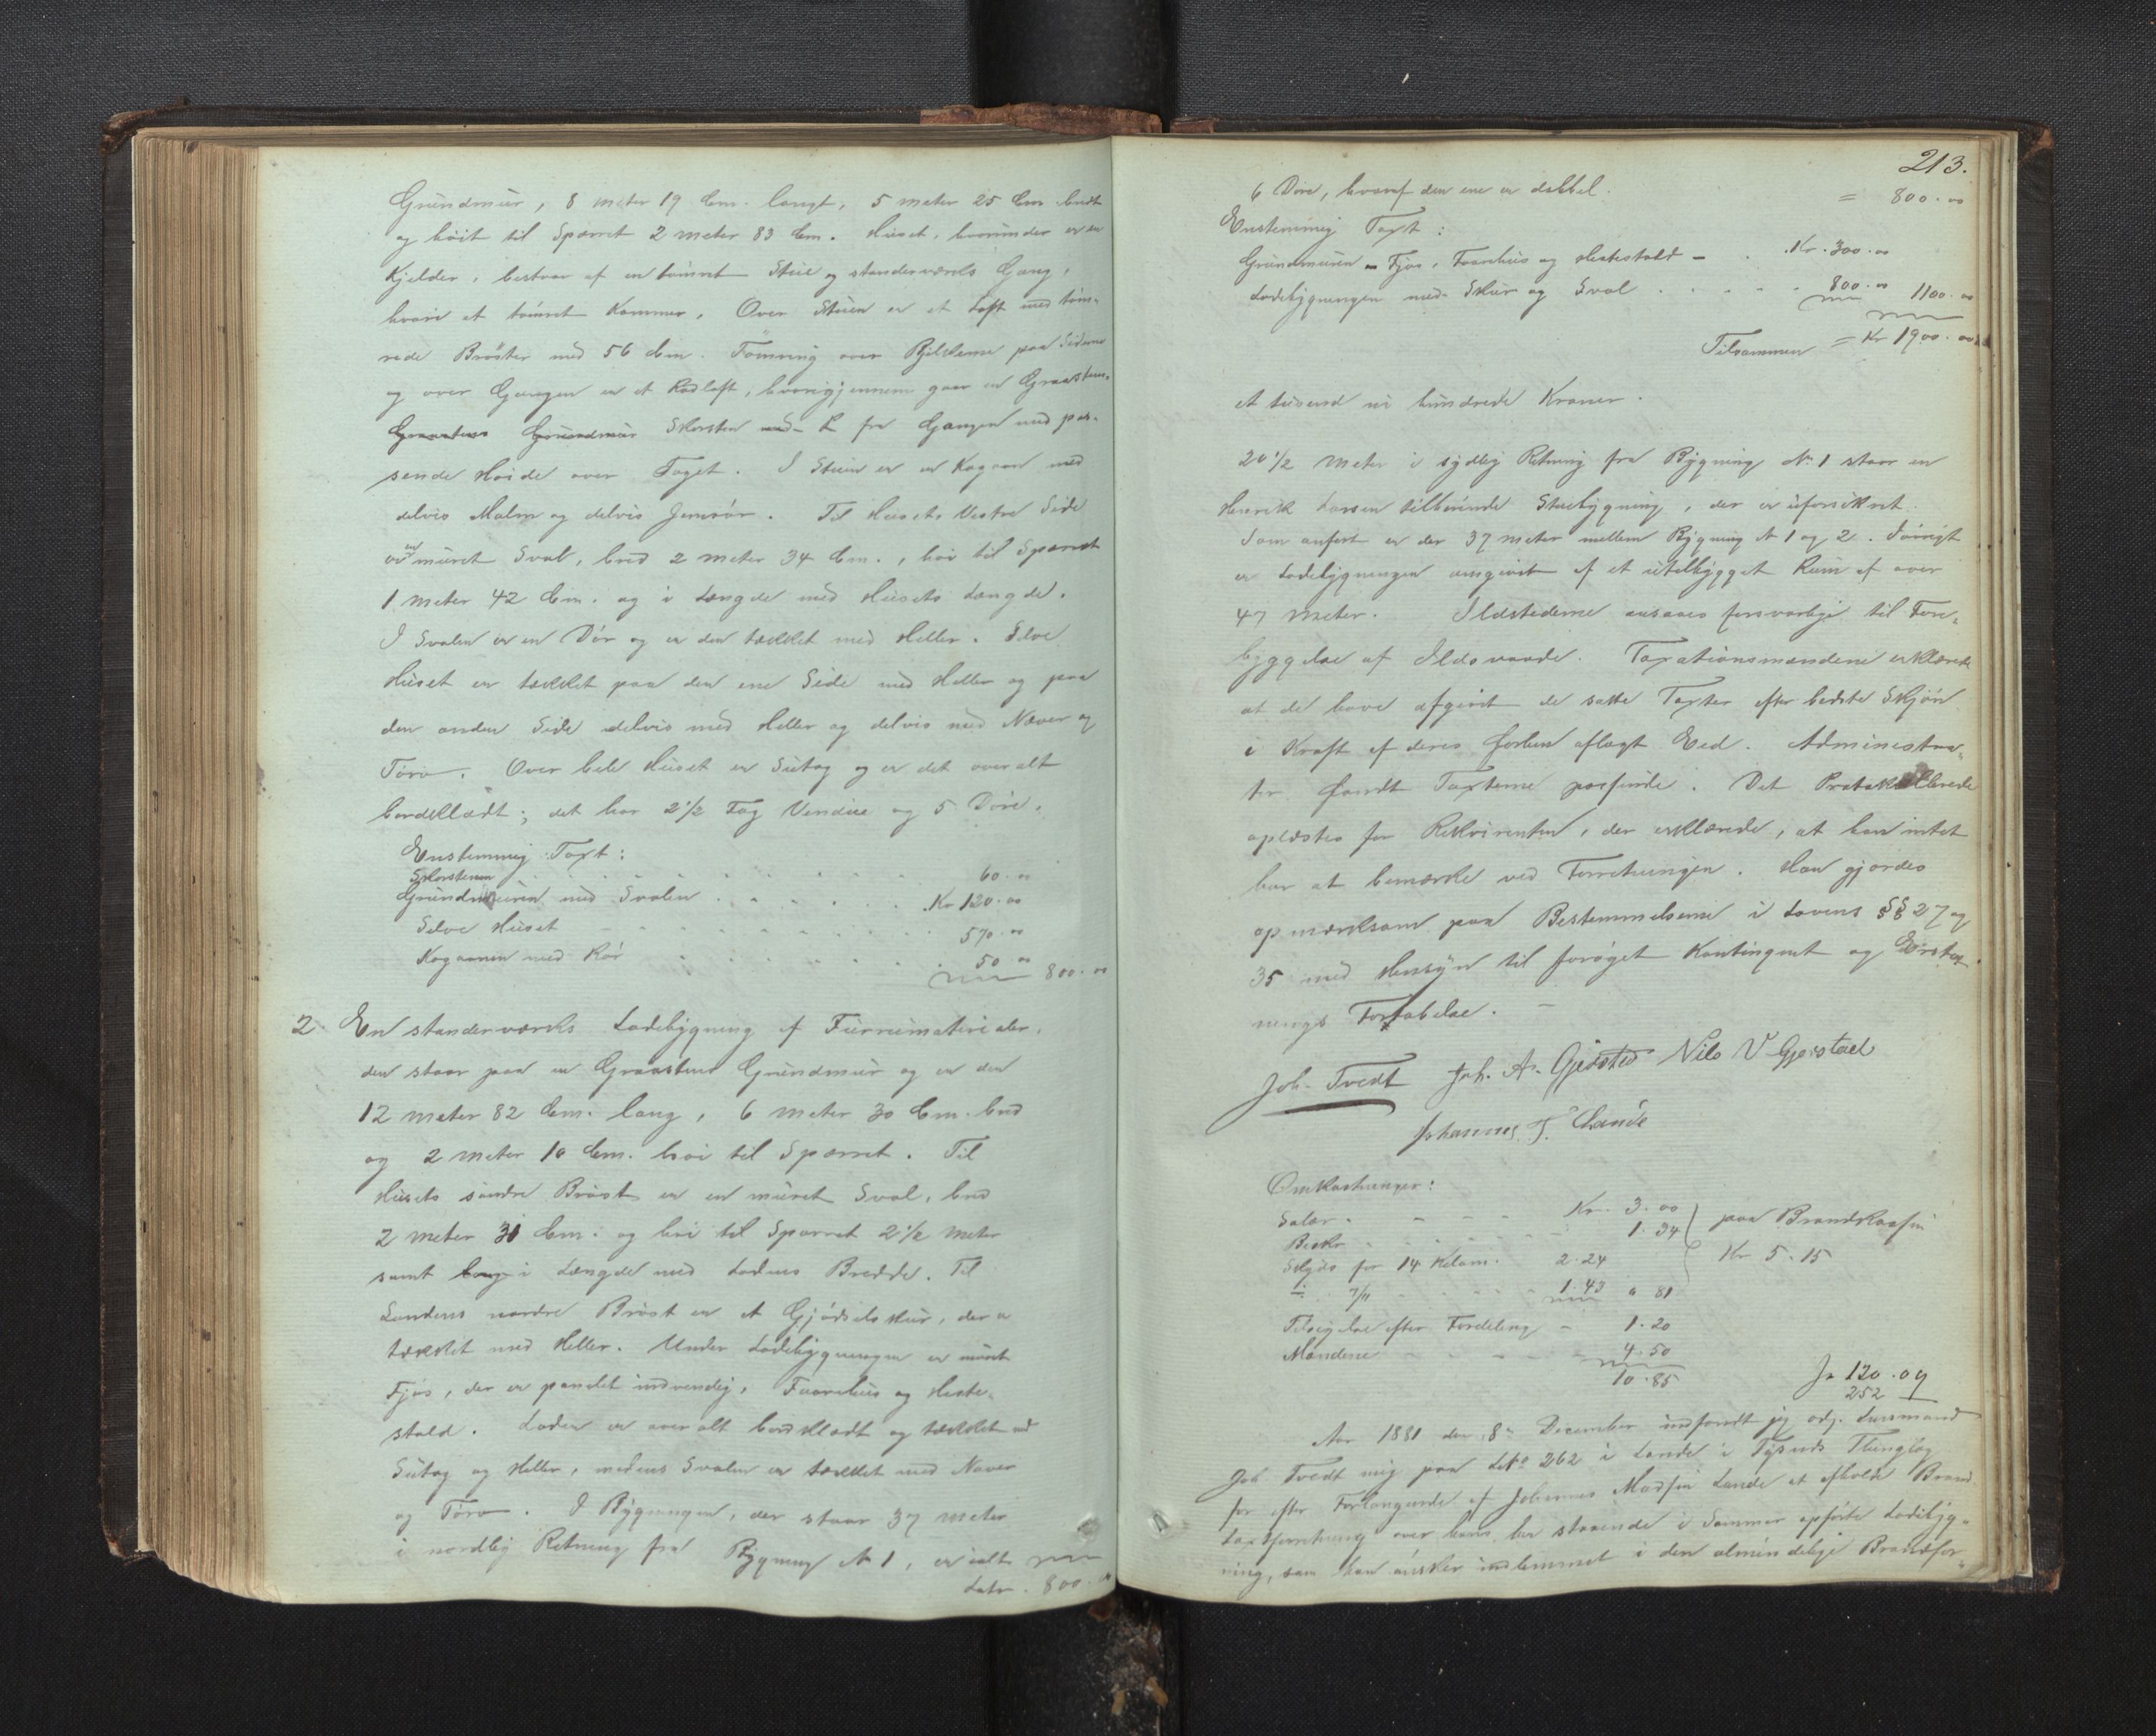 Grundmur, 8 meter 19 Cm. langt, 5 meter 25 Cm. bredt
og høit til Sparret 2 meter 83 Cm. Huset, hvorunder er en
Kjelder, bestaar af en tømret Stue og standerværks Gang,
hvori et tømret Kammer. Over Stuen er et Loft med tøm-
rede Brøster med 56 Cm. Tømring over Bjelkerne paa Siderne
og over Gangen er et Rodloft, hvorigjennem gaar en Graastens-
Graastens Grundmur Skorsten med fra Gangen med pas-
sende Høide over Taget. I Stuen er en Kogovn med
delvis Malm og delvis Jernrør. Til Husets Vestre Side
er en muret Sval, bred 2 meter 34 Cm., høi til Sparret
1 meter 42 Cm. og i Længde med Husets Længde.
I Svalen er en Dør og er den tækket med Heller. Selve
Huset er tækket paa den ene Side med Heller og paa
den anden Side delvis med Heller og delvis med Næver og
Torv. Over hele Huset er Sutag og er det overalt
bordklædt; det har 2 1/2 Fag Vendue og 5 Døre.
Enstemmig Taxt:
Skorstenen . . . . . 60.00
Grundmuren med Svalen . . . . Kr 120.00
Selve Huset . . . . . 570.00
Kogovnen med Rør . . . . . 50.00 800.00
2. En standerværks Ladebygning af Furrumaterialer,
den staar paa en Graastens Grundmur og er den
12 meter 82 Cm. lang, 6 meter 30 Cm. bred
og 2 meter 10 Cm. høi til Sparret. Til
Husets søndre Brøst er en muret Sval, bred
2 meter 31 Cm. og høi til Sparret 2 1/2 meter
samt lang i Længde med Ladens Bredde. Til
Ladens nordre Brøst er et Gjødselsskur, der er
tækket med Heller. Under Ladebygningen er muret
Fjøs, der er panelet indvendig, Faarehus og Heste-
stald. Laden er overalt bordklædt og tækket med
Sutag og Heller, medens Svalen er tækket med Næver
og Torv. I Bygningen, der staar 37 meter
i nordlig Retning fra Bygning № 1, er ialt
Latr. 800.00
213.
6 Døre, hvoraf den ene er dobbel. = 800.00
Enstemmig Taxt:
Grundmuren – Fjøs, Faarehus og Hestestald – . Kr. 300.00
Ladebygningen med Skur og Sval . . . . 800.00 1100.00
Tilsammen = Kr 1900.00
et tusend ni hundrede Kroner.
20 1/2 meter i sydlig Retning fra Bygning № 1 staar en
Henrik Larsen tilhørende Stuebygning, der er uforsikret.
Som anført er der 37 meter mellem Bygning № 1 og 2. Iøvrigt
er Ladebygningen omgivet af et utelbygget Rum af over
47 meter. Ildstederne ansaaes forsvarlige til Fore-
byggelse af Ildsvaade. Taxationsmændene erklærede
at de have afgivet de satte Taxter efter bedste Skjøn
i Kraft af deres forhen aflagt Eed. Administra-
tor fandt Taxterne passende. Det Protokollerede
oplæstes for Rekvirenten, der erklærede, at han intet
har at bemærke ved Forretningen. Han gjordes
opmærksom paa Bestemmelserne i Lovens §§ 27 og
35 med Hensyn til forøget Kontingent og Erstat-
nings Fortabelse. –
Joh. Tvedt Joh. A. Gjerstad Nils V Gjerstad
Johannes T. Lande
Omkostninger:
Salær . . . . Kr. 3.00
Beskr . . . . 1.34 paa Brandkassen
Skyds for 14 Kilom. 2.24 Kr 5.15
÷ 7/11 . . . . 1.43 0 81
Tilsigelse efter Fordeling – 1.20
Mændene . . . . 4.50
10.85
Jr 120.09
252
Aar 1881 den 8de December indfandt jeg odj. Lensmand
Joh Tvedt mig paa L№ 262 i Lande i Tysnes Thinglag
for efter Forlangende af Johannes Madsen Lande at afholde Brand-
taxtforretning over hans her staaende i Sommer opførte Ladebyg-
ning, som han ønsker indlemmet i den almindelige Brandfor-